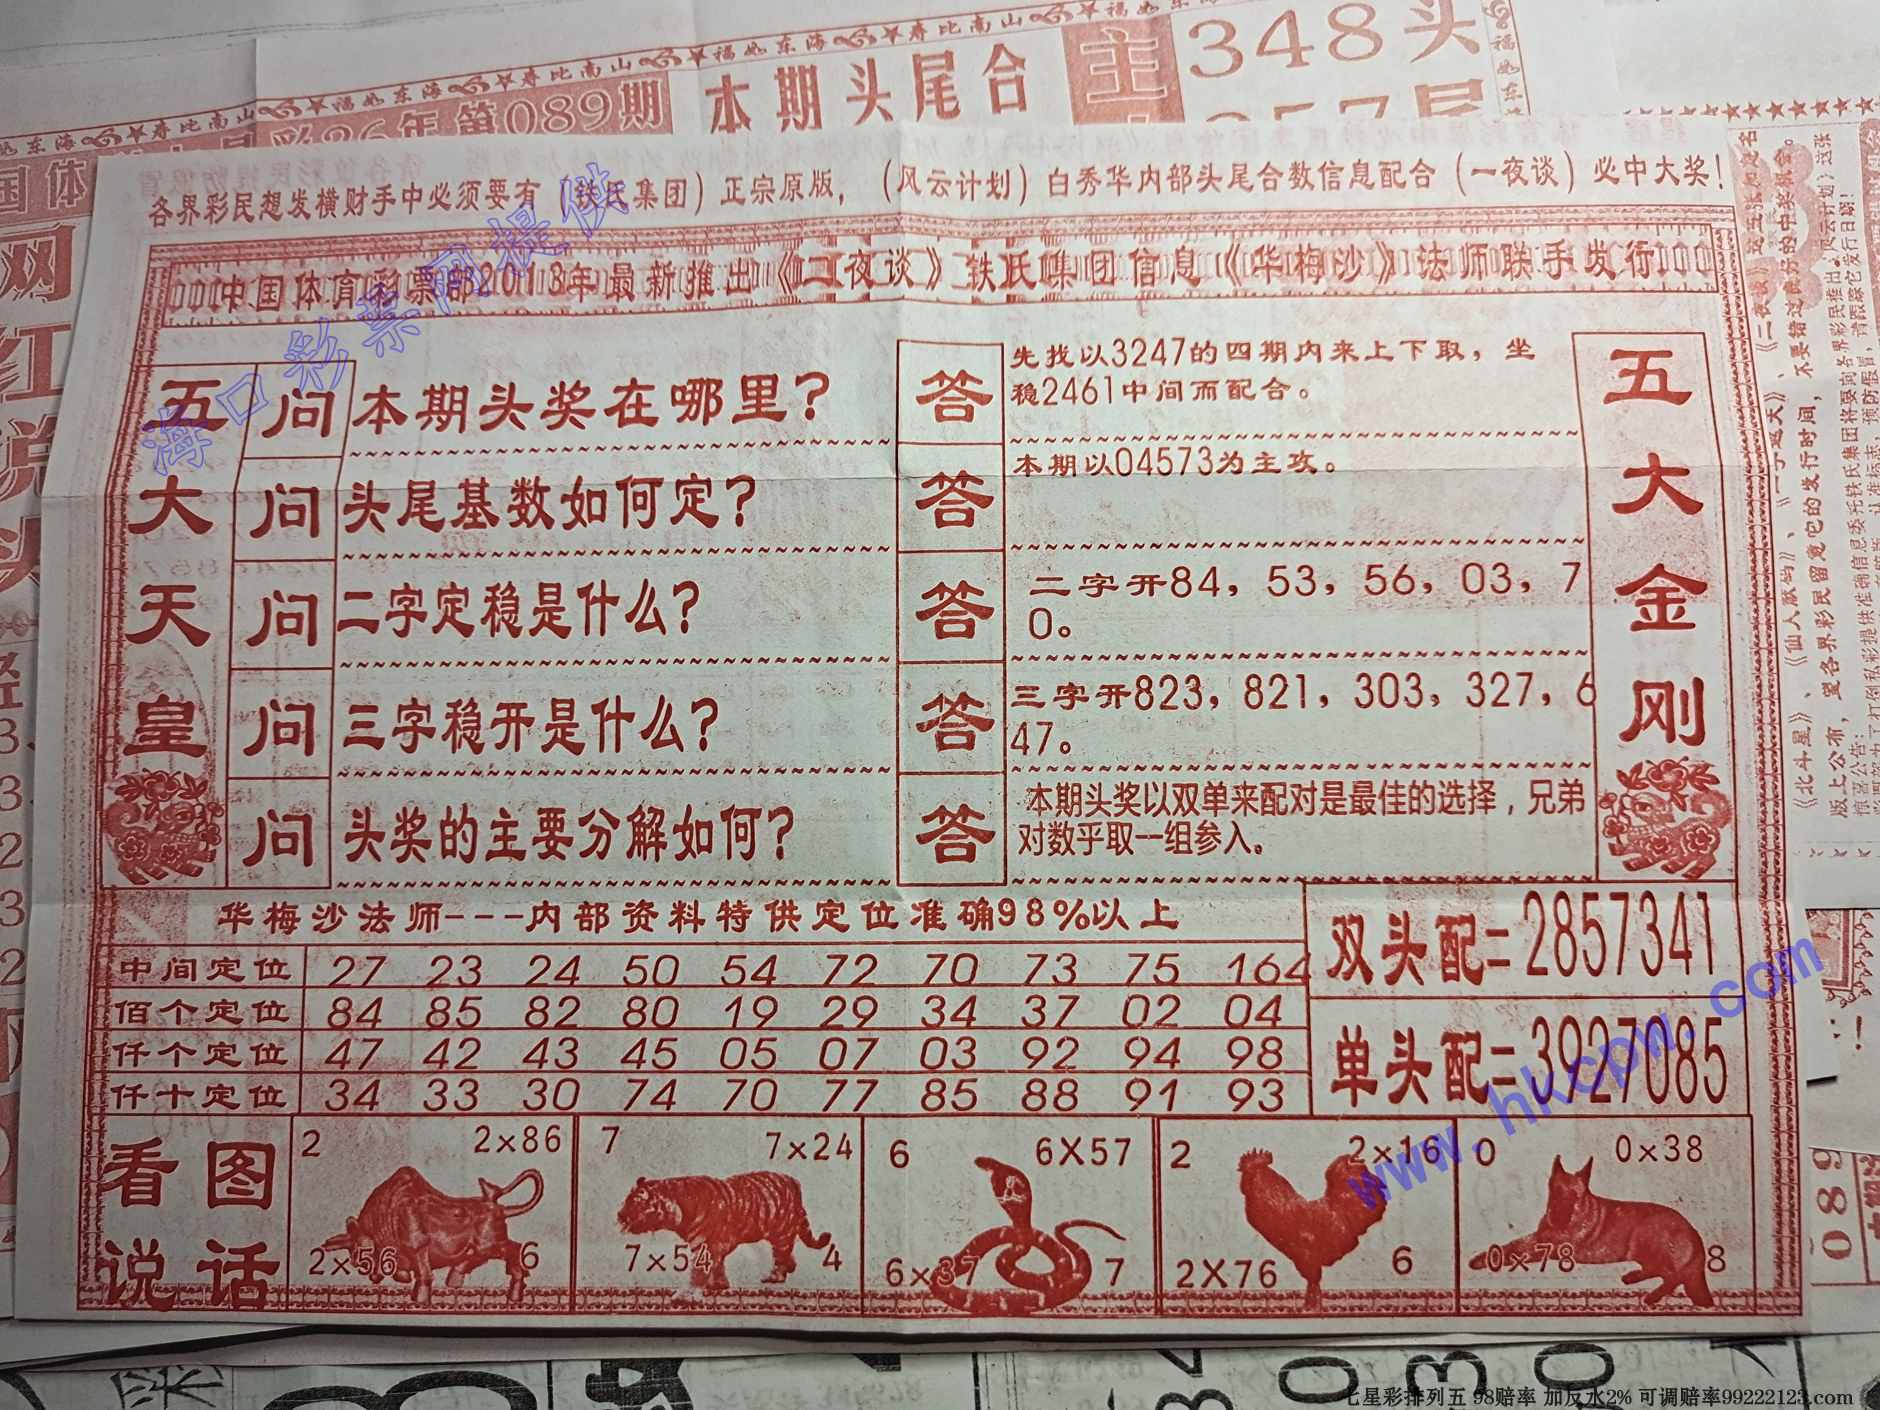 福如东海 寿比南山 福如东海 寿比南山 福如东海 寿比南山 福如东海
26年第089期
本期头尾合
主
348头
各界彩民想发横财手中必须要有（铁氏集团）正宗原版，（风云计划）白秀华内部头尾合数信息配合（一夜谈）必中大奖！
中国体育彩票部2013年最新推出《二夜谈》铁氏集团信息《华梅沙》法师联手发行
五大天皇
问 本期头奖在哪里？
答 先找以3247的四期内来上下取，坐
稳2461中间而配合。
问 头尾基数如何定？
答 本期以04573为主攻。
问 二字定稳是什么？
答 二字开84，53，56，03，7
0。
问 三字稳开是什么？
答 三字开823，821，303，327，6
47。
问 头奖的主要分解如何？
答 本期头奖以双单来配对是最佳的选择，兄弟
对数乎取一组参入。
五大金刚
华梅沙法师---内部资料特供定位准确98%以上
中间定位 27 23 24 50 54 72 70 73 75 164
佰个定位 84 85 82 80 19 29 34 37 02 04
仟个定位 47 42 43 45 05 07 03 92 94 98
仟十定位 34 33 30 74 70 77 85 88 91 93
双头配=2857341
单头配=3927085
看图
说话
2 2×86
2×56 6
7 7×24
7×54 4
6 6X57
6×37 7
2 2×16
2X76 6
0 0×38
0×78 8
海口彩票网提供
www.hkcpw.com
089
七星彩排列五 98赔率 加反水2% 可调赔率99222123.com